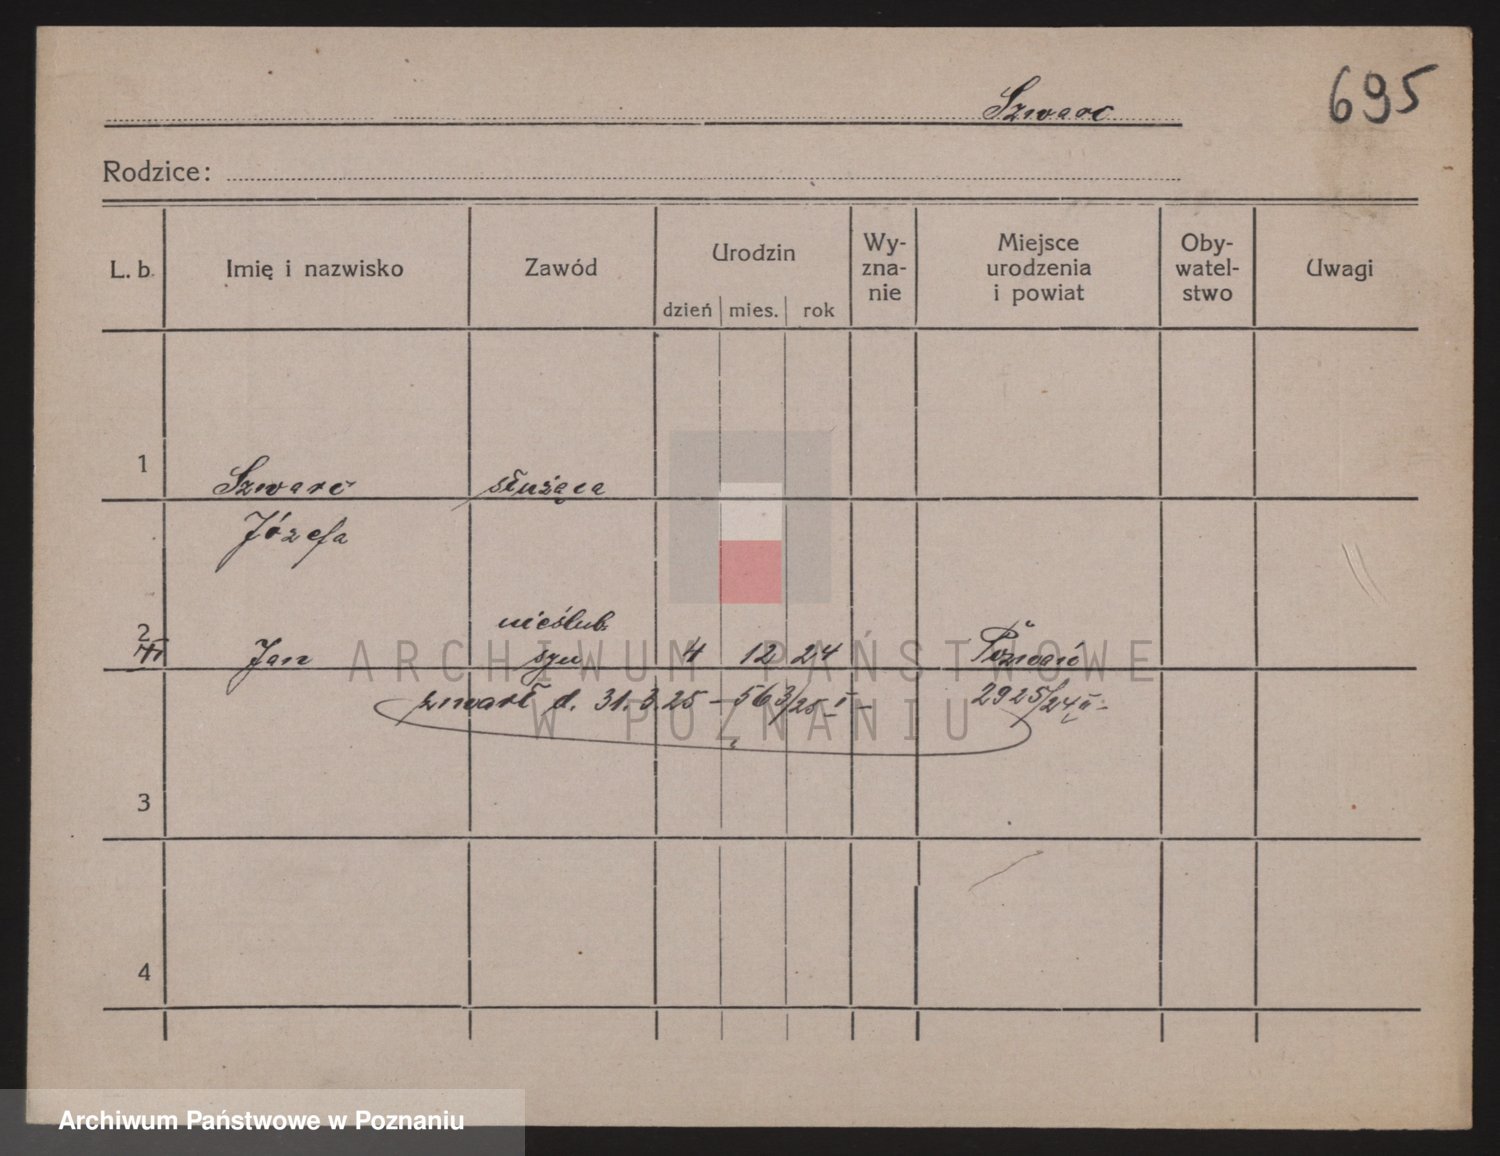 Szwarc
695
Rodzice:
L. b. Imię i nazwisko Zawód Urodzin Wy- Miejsce Oby- Uwagi
zna- urodzenia watel-
dzień mies. rok nie i powiat stwo
1 Szwarc służąca
Józefa
2 nieślub.
Jan syn 4 12 24 Poznań
zmarł d. 31.3.25 – 563/25 I – 2925/24 II -
3
4
ARCHIWUM PAŃSTWOWE
W POZNANIU
Archiwum Państwowe w Poznaniu